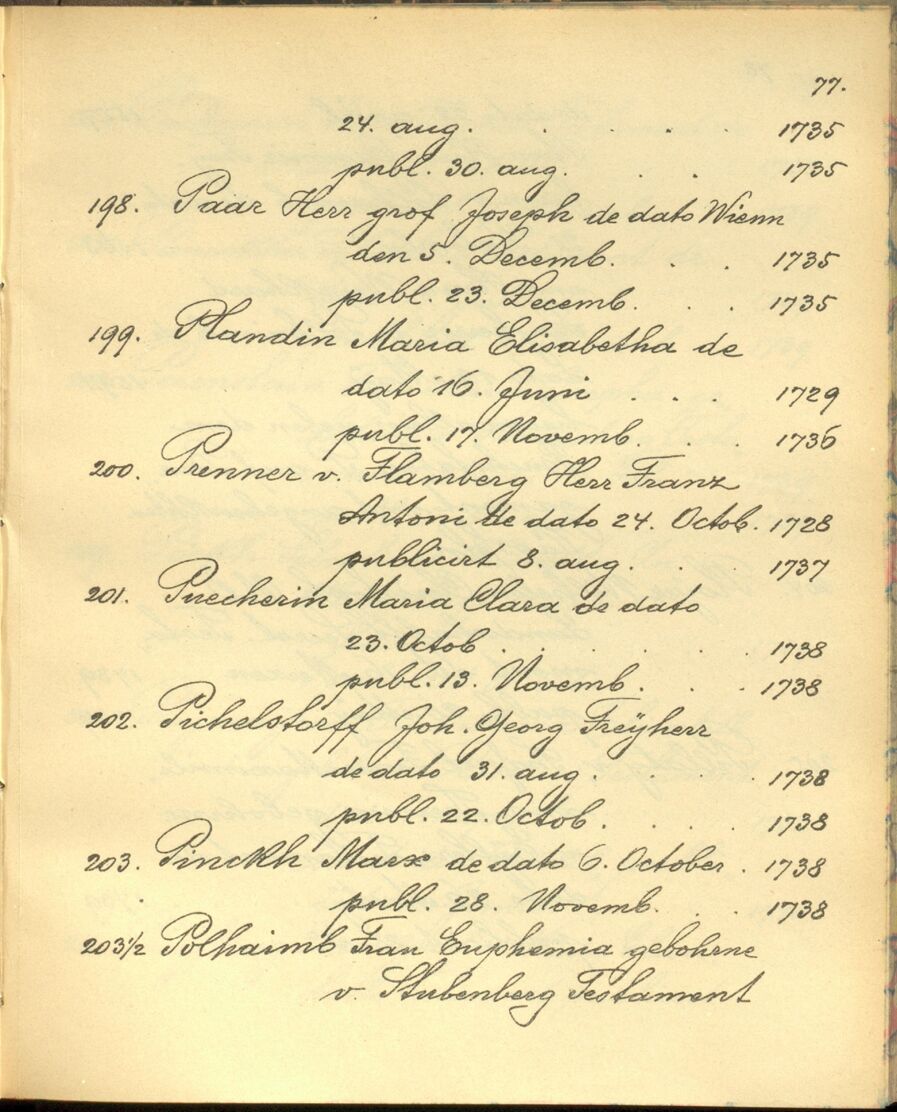 77.
24. aug. . . . . 1735
publ. 30. aug. . . 1735
198. Paar Herr grof Joseph de dato Wienn
den 5. Decemb. . . 1735
publ. 23. Decemb. . . 1735
199. Plandin Maria Elisabetha de
dato 16. Juni . . . 1729
publ. 17. Novemb. . . 1736
200. Prenner v. Flamberg Herr Franz
Antoni de dato 24. Octob. 1728
publicirt 8. aug. . . 1737
201. Puecherin Maria Clara de dato
23. Octob . . . . . . 1738
publ. 13. Novemb. . . 1738
202. Pichelstorff Joh. Georg Freÿherr
de dato 31. aug. . . 1738
publ. 22. Octob. . . . 1738
203. Pinckh Marx de dato 6. October . 1738
publ. 28. Novemb. . . 1738
203½ Polhaimb Frau Euphemia gebohrne
v. Stubenberg Testament